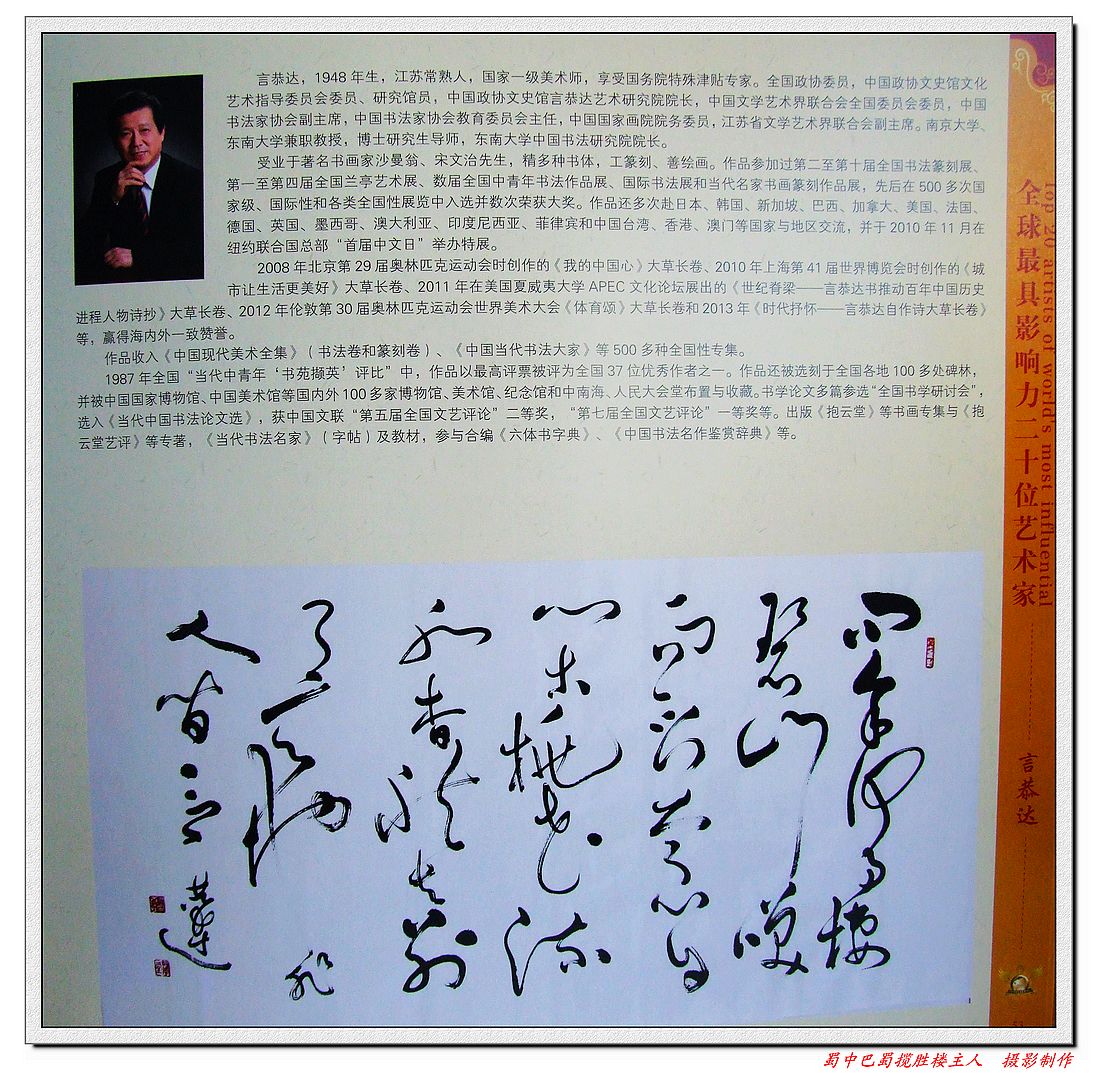 言恭达，1948年生，江苏常熟人，国家一级美术师，享受国务院特殊津贴专家。全国政协委员，中国政协文史馆文化
艺术指导委员会委员、研究馆员，中国政协文史馆言恭达艺术研究院院长，中国文学艺术界联合会全国委员会委员，中国
书法家协会副主席，中国书法家协会教育委员会主任，中国国家画院院务委员，江苏省文学艺术界联合会副主席。南京大学、
东南大学兼职教授，博士研究生导师，东南大学中国书法研究院院长。
受业于著名书画家沙曼翁、宋文治先生，精多种书体，工篆刻、善绘画。作品参加过第二至第十届全国书法篆刻展、
第一至第四届全国兰亭艺术展、数届全国中青年书法作品展、国际书法展和当代名家书画篆刻作品展，先后在500多次国
家级、国际性和各类全国性展览中入选并数次荣获大奖。作品还多次赴日本、韩国、新加坡、巴西、加拿大、美国、法国、
德国、英国、墨西哥、澳大利亚、印度尼西亚、菲律宾和中国台湾、香港、澳门等国家与地区交流，并于2010年11月在
纽约联合国总部“首届中文日”举办特展。
2008年北京第29届奥林匹克运动会时创作的《我的中国心》大草长卷、2010年上海第41届世界博览会时创作的《城
市让生活更美好》大草长卷、2011年在美国夏威夷大学APEC文化论坛展出的《世纪脊梁——言恭达书推动百年中国历史
进程人物诗抄》大草长卷、2012年伦敦第30届奥林匹克运动会世界美术大会《体育颂》大草长卷和2013年《时代抒怀——言恭达自作诗大草长卷》
等，赢得海内外一致赞誉。
作品收入《中国现代美术全集》（书法卷和篆刻卷）、《中国当代书法大家》等500多种全国性专集。
1987年全国“当代中青年‘书苑撷英’评比”中，作品以最高评票被评为全国37位优秀作者之一。作品还被选刻于全国各地100多处碑林，
并被中国国家博物馆、中国美术馆等国内外100多家博物馆、美术馆、纪念馆和中南海、人民大会堂布置与收藏。书学论文多篇参选“全国书学研讨会”，
选入《当代中国书法论文选》，获中国文联“第五届全国文艺评论”二等奖，“第七届全国文艺评论”一等奖等。出版《抱云堂》等书画专集与《抱
云堂艺评》等专著，《当代书法名家》（字帖）及教材，参与合编《六体书字典》、《中国书法名作鉴赏辞典》等。
全球最具影响力二十位艺术家
Top 20 artists of world's most influential
言恭达
问余何事栖
碧山笑
而不答心自
闲桃花流
水杳然去别
有天地非
人间 言恭达
蜀中巴蜀揽胜楼主人 摄影制作